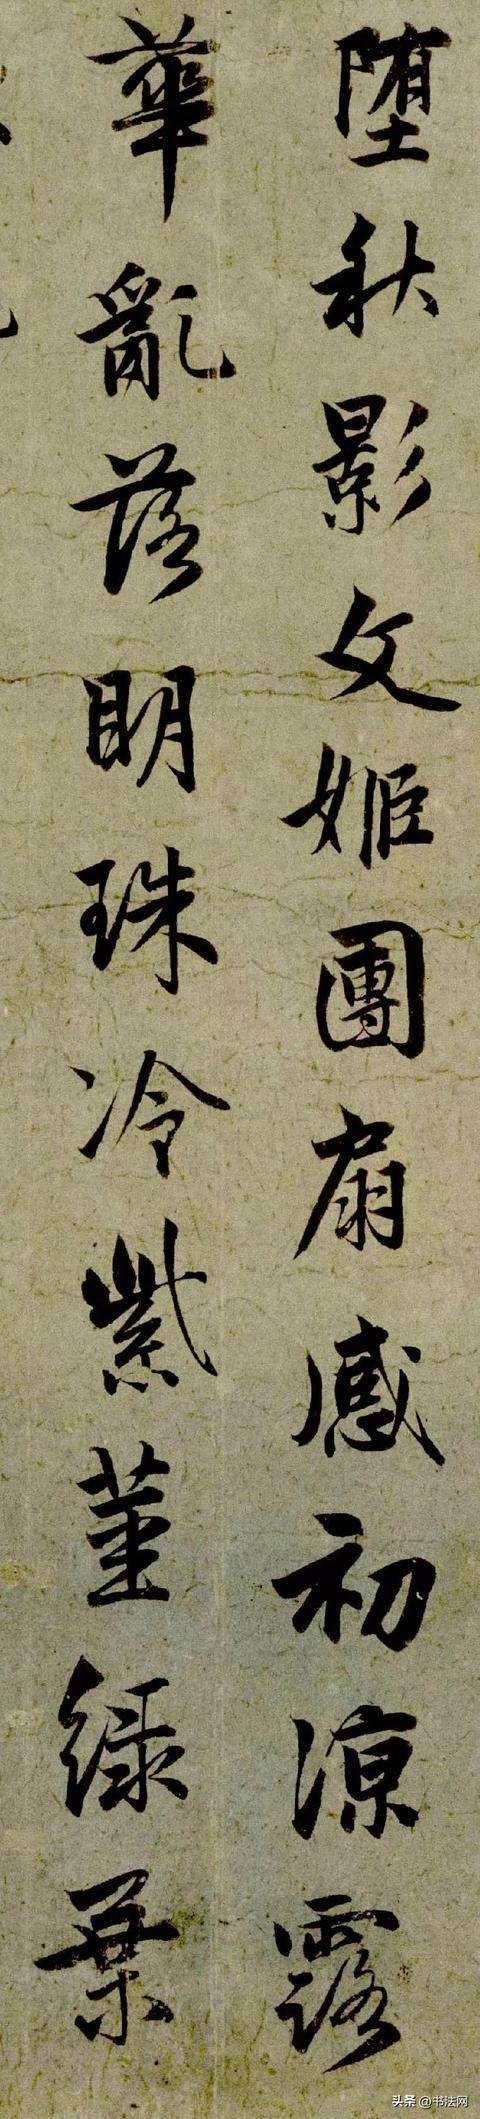 堕秋影文姬團扇感初涼露
華亂落明珠冷紫菫綠葉
头条 @书法网